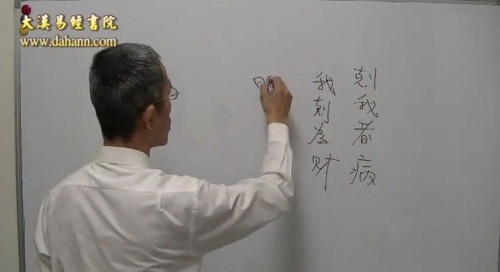 大漢易經書院
www.dahann.com
剋我者病
我剋為财